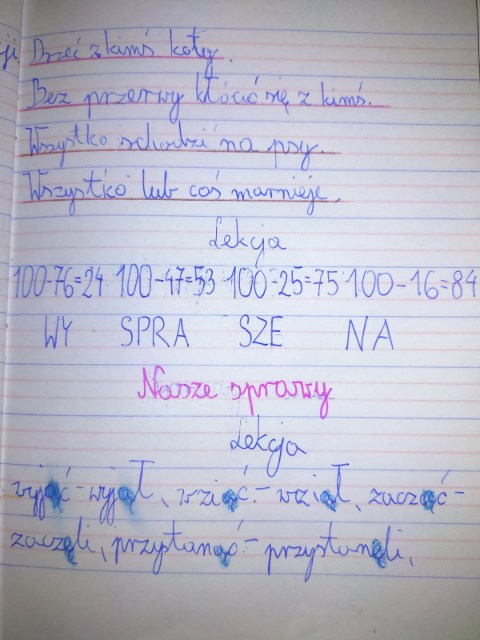 Drzeć z kimś koty.
Bez przerwy kłócić się z kimś.
Wszystko schodzi na psy.
Wszystko lub coś marnieje.
Lekcja
100-76=24 100-47=53 100-25=75 100-16=84
WY SPRA SZE NA
Nasze sprawy
Lekcja
wyjąć - wyjął, wziąć - wziął, zacząć -
zaczęli, przystanąć - przystanęli,